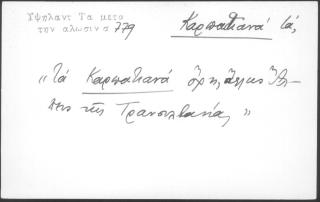 Υψηλαντ Τα μετα
την αλωσιν σ 779
Καρπατιανά τά,
"Τά Καρπατιανά ὄρη,
της Τρανσιλβανίας"